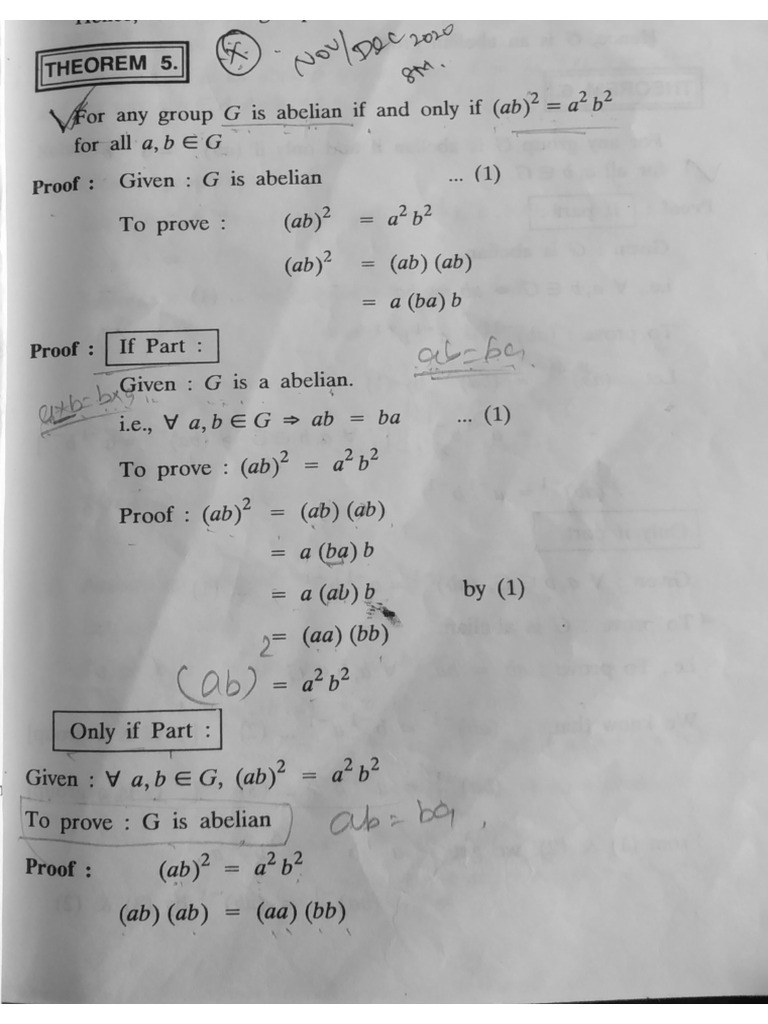 THEOREM 5. X. - NOV/DEC 2020
8M.
For any group G is abelian if and only if (ab)² = a² b²
for all a, b ∈ G
Proof : Given : G is abelian ... (1)
To prove : (ab)² = a² b²
(ab)² = (ab) (ab)
= a (ba) b
Proof : If Part : ab = ba
Given : G is a abelian.
a*b = b*a
i.e., ∀ a, b ∈ G ⇒ ab = ba ... (1)
To prove : (ab)² = a² b²
Proof : (ab)² = (ab) (ab)
= a (ba) b
= a (ab) b by (1)
= (aa) (bb)
(ab)² = a² b²
Only if Part :
Given : ∀ a, b ∈ G, (ab)² = a² b²
To prove : G is abelian ab = ba,
Proof : (ab)² = a² b²
(ab) (ab) = (aa) (bb)